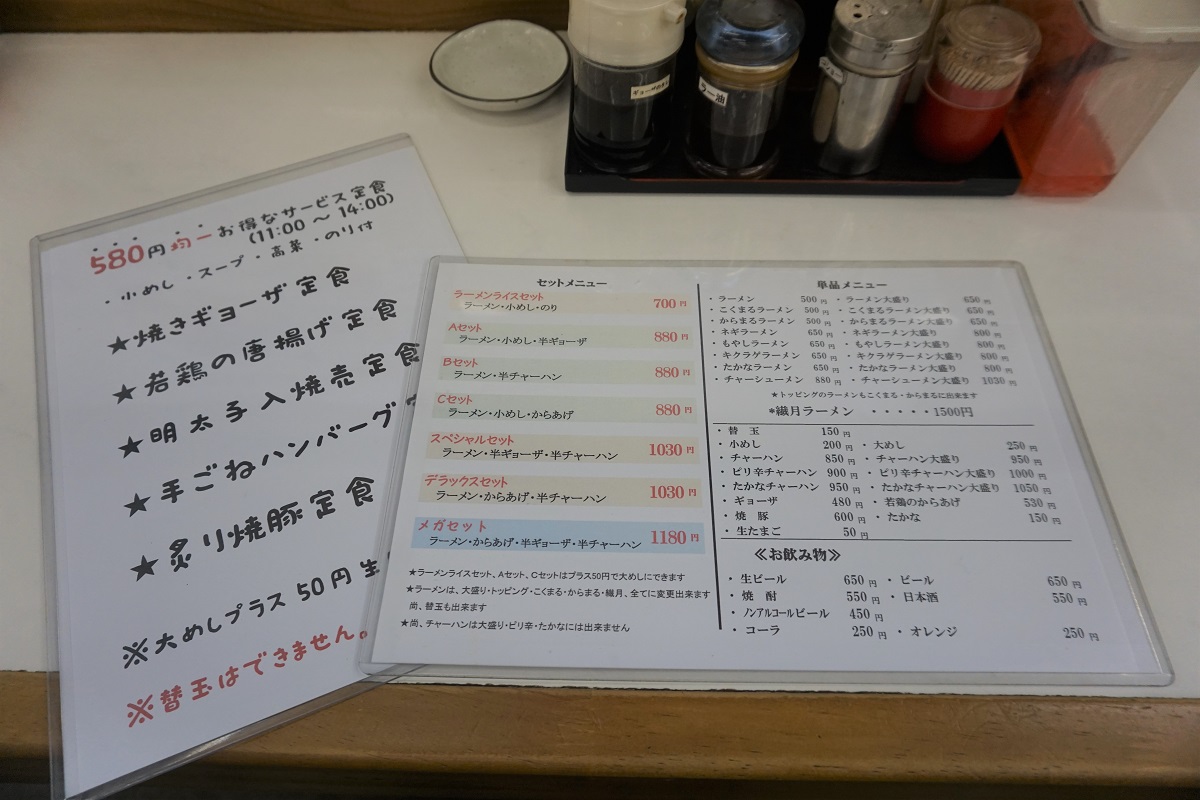 580円均一お得なサービス定食
(11:00 ～ 14:00)
・小めし・スープ・高菜・のり付
★焼きギョーザ定食
★若鶏の唐揚げ定食
★明太子入焼売定食
★手ごねハンバーグ
★炙り焼豚定食
※大めしプラス50円生
※替玉はできません。
セットメニュー
ラーメンライスセット 700円
ラーメン・小めし・のり
Aセット 880円
ラーメン・小めし・半ギョーザ
Bセット 880円
ラーメン・半チャーハン
Cセット 880円
ラーメン・小めし・からあげ
スペシャルセット 1030円
ラーメン・半ギョーザ・半チャーハン
デラックスセット 1030円
ラーメン・からあげ・半チャーハン
メガセット 1180円
ラーメン・からあげ・半ギョーザ・半チャーハン
★ラーメンライスセット、Aセット、Cセットはプラス50円で大めしにできます
★ラーメンは、大盛り・トッピング・こくまる・からまる・繊月、全てに変更出来ます
尚、替玉も出来ます
★尚、チャーハンは大盛り・ピリ辛・たかなには出来ません
単品メニュー
・ラーメン 500円 ・ラーメン大盛り 650円
・こくまるラーメン 500円 ・こくまるラーメン大盛り 650円
・からまるラーメン 500円 ・からまるラーメン大盛り 650円
・ネギラーメン 650円 ・ネギラーメン大盛り 800円
・もやしラーメン 650円 ・もやしラーメン大盛り 800円
・キクラゲラーメン 650円 ・キクラゲラーメン大盛り 800円
・たかなラーメン 650円 ・たかなラーメン大盛り 800円
・チャーシューメン 880円 ・チャーシューメン大盛り 1030円
★トッピングのラーメンもこくまる・からまるに出来ます
*繊月ラーメン ・・・・・1500円
・替 玉 150円
・小めし 200円 ・大めし 250円
・チャーハン 850円 ・チャーハン大盛り 950円
・ピリ辛チャーハン 900円 ・ピリ辛チャーハン大盛り 1000円
・たかなチャーハン 950円 ・たかなチャーハン大盛り 1050円
・ギョーザ 480円 ・若鶏のからあげ 530円
・焼 豚 600円 ・たかな 150円
・生たまご 50円
≪お飲み物≫
・生ビール 650円 ・ビール 650円
・焼 酎 550円 ・日本酒 550円
・ノンアルコールビール 450円
・コーラ 250円 ・オレンジ 250円
ラー油